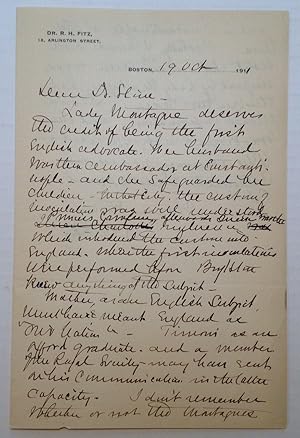 DR. R. H. FITZ,
18, ARLINGTON STREET.
BOSTON, 19 Oct 1911
Dear Dr. Kline
Lady Montague deserves
the credit of being the first
English advocate. Her husband
was then ambassador at Constanti-
nople - and she safeguarded her
children - in that City, the custom of
inoculation was well understood
influence
which introduced the custom into
England - when the first inoculations
were performed upon Boylston
knew anything of the subject -
Mather, as an English subject
must have meant England as
"our Nation" - Timoni as an
Oxford graduate - and a member
of the Royal Society may have sent
in his Communication in the latter
capacity. - I don't remember
whether or not the Montagues